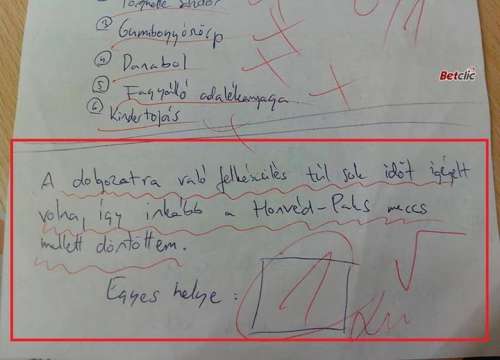 ③ Gumibogyószörp
④ Danabol
⑤ Fagyálló adalékanyaga
⑥ Kindertojás
Betclic
A dolgozatra való felkészülés túl sok időt igényelt
volna, így inkább a Honvéd-Paks meccs
mellett döntöttem.
Egyes helye:
1